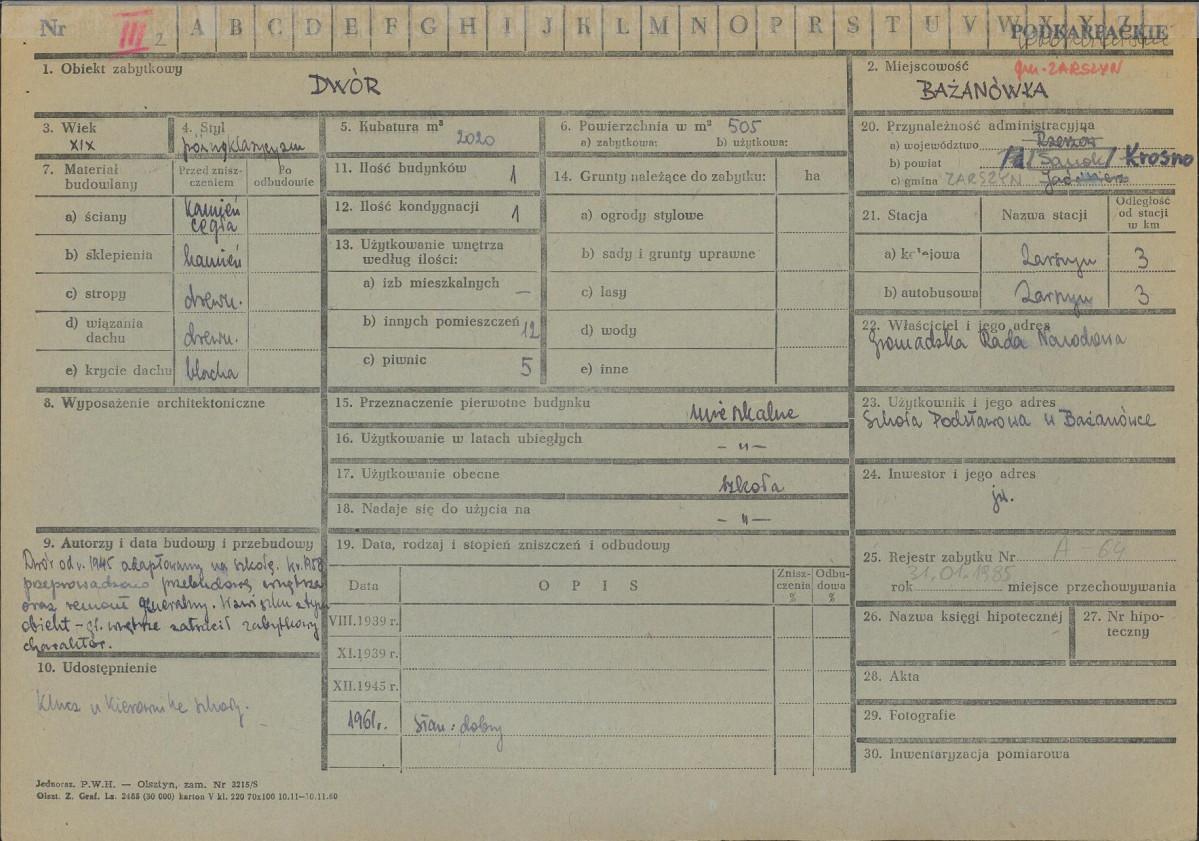 Nr III 2 A B C D E F G H I J K L M N O P R S T U V W X Y Z
PODKARPACKIE
1. Obiekt zabytkowy
DWÓR
2. Miejscowość
gm. ZARSZYN
BAŻANÓWKA
3. Wiek
XIX
4. Styl
późnoklasycyzm
5. Kubatura m³
2020
6. Powierzchnia w m² 505
a) zabytkowa: b) użytkowa:
20. Przynależność administracyjna
a) województwo Rzeszów
b) powiat /d/Sanok/ Krosno
c) gmina ZARSZYN
7. Materiał
budowlany
Przed znisz-
czeniem
Po
odbudowie
a) ściany kamień
cegła
b) sklepienia kamień
c) stropy drewn.
d) wiązania
dachu drewn.
e) krycie dachu blacha
11. Ilość budynków 1
12. Ilość kondygnacji 1
13. Użytkowanie wnętrza
według ilości:
a) izb mieszkalnych —
b) innych pomieszczeń 12
c) piwnic 5
14. Grunty należące do zabytku: ha
a) ogrody stylowe
b) sady i grunty uprawne
c) lasy
d) wody
e) inne
21. Stacja Nazwa stacji Odległość
od stacji
w km
a) kolejowa Zarszyn 3
b) autobusowa Zarszyn 3
22. Właściciel i jego adres
Gromadzka Rada Narodowa
8. Wyposażenie architektoniczne
15. Przeznaczenie pierwotne budynku
mieszkalne
16. Użytkowanie w latach ubiegłych
— " —
17. Użytkowanie obecne
szkoła
18. Nadaje się do użycia na
— " —
23. Użytkownik i jego adres
Szkoła Podstawowa w Bażanówce
24. Inwestor i jego adres
jw.
9. Autorzy i data budowy i przebudowy
Dwór od r. 1945 adaptowany na szkołę. W r. 1958
przeprowadzono przebudowę wnętrza
oraz remont generalny. W związku z tym
obiekt - gł. wnętrze zatracił zabytkowy
charakter.
10. Udostępnienie
Klucz u Kierownika szkoły.
19. Data, rodzaj i stopień zniszczeń i odbudowy
Data OPIS Znisz-
czenia
% Odbu-
dowa
%
VIII.1939 r.
XI.1939 r.
XII.1945 r.
1961r. Stan: dobry
25. Rejestr zabytku Nr A - 64
31.01.1985
rok miejsce przechowywania
26. Nazwa księgi hipotecznej
27. Nr hipo-
teczny
28. Akta
29. Fotografie
30. Inwentaryzacja pomiarowa
Jednoraz. P.W.H. — Olsztyn, zam. Nr 3215/S
Olszt. Z. Graf. Lz. 2485 (30 000) karton V kl. 220 70x100 10.11—10.11.60